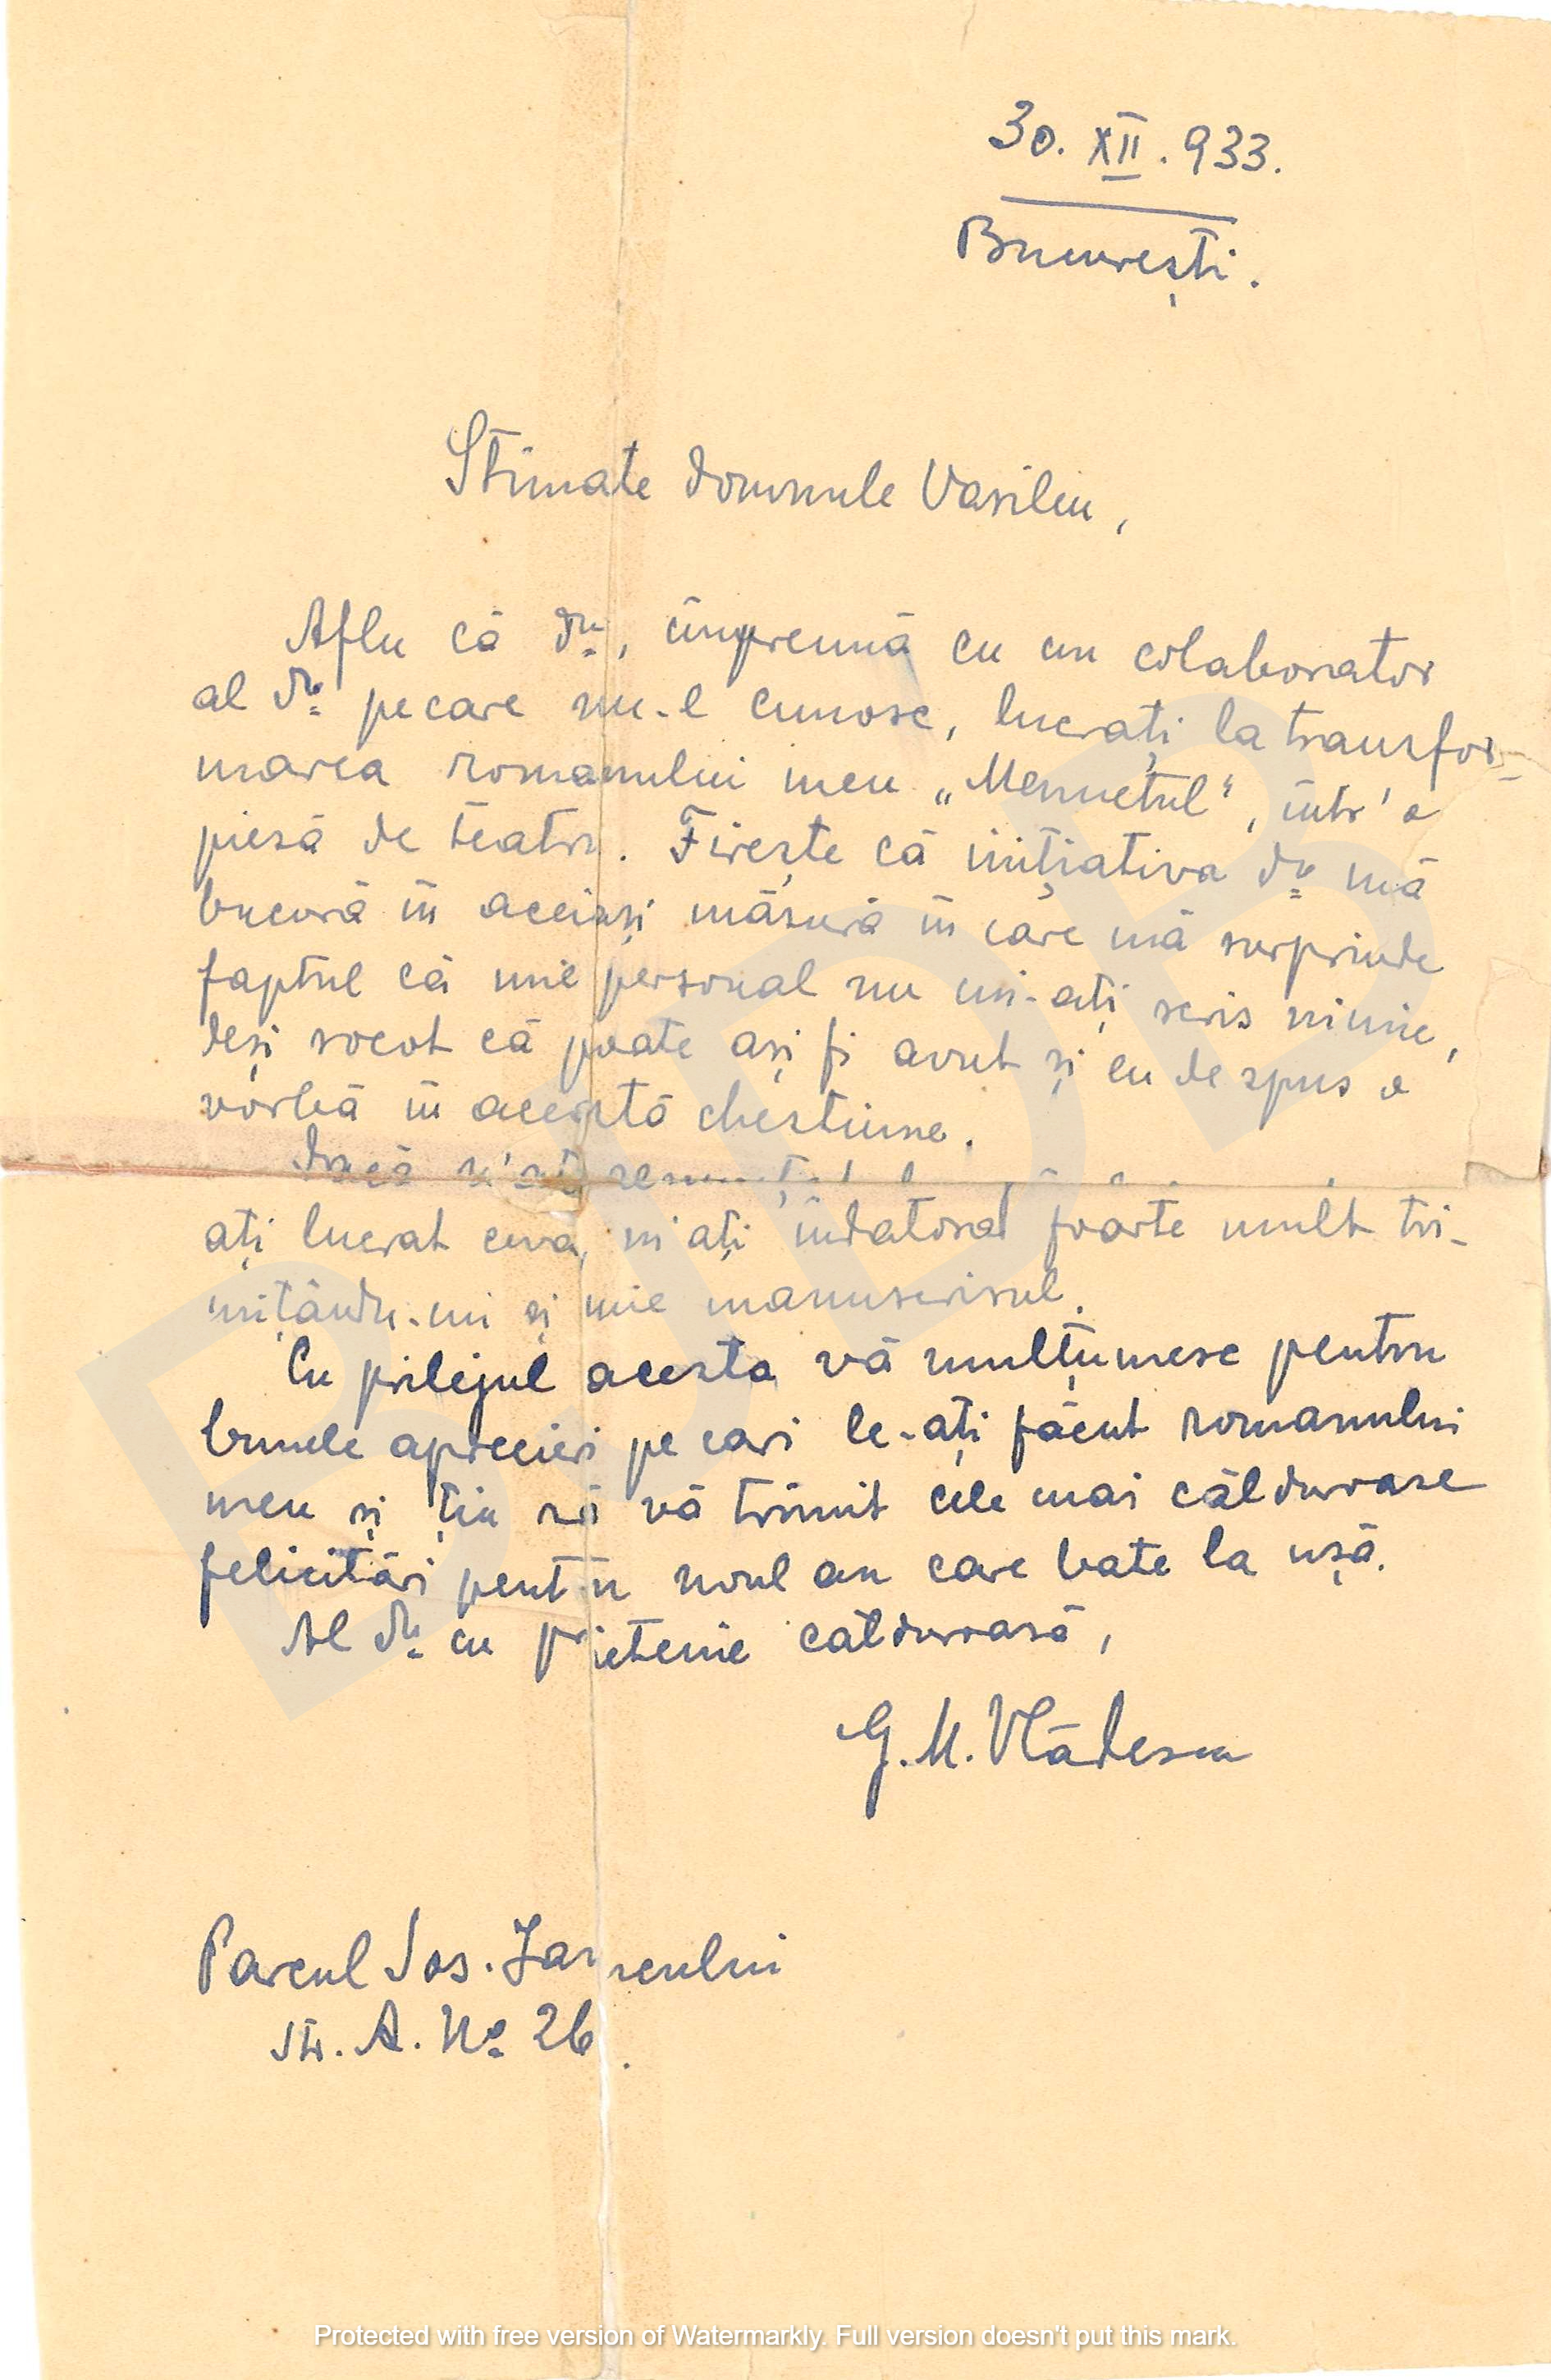 30. XII. 933.
București.
Stimate domnule Vasiliu,
Aflu că dv., împreună cu un colaborator
al dv. pe care nu-l cunosc, lucrați la transfor-
marea romanului meu „Menuetul”, într'o
piesă de teatru. Firește că inițiativa dv. mă
bucură în aceiași măsură în care mă surprinde
faptul că mie personal nu mi-ați scris nimic,
deși socot că poate ași fi avut și eu de spus o
vorbă în această chestiune.
Dacă n'ați
ați lucrat ceva, m'ați îndatora foarte mult tri-
mițându-mi și mie manuscrisul.
Cu prilejul acesta vă mulțumesc pentru
bunele aprecieri pe cari le-ați făcut romanului
meu și țiu să vă trimit cele mai călduroase
felicitări pentru noul an care bate la ușă.
Al dv. cu prietenie călduroasă,
G. M. Vlădescu
Parcul Sos. Jianului
Str. A. No 26.
BJDB
Protected with free version of Watermarkly. Full version doesn't put this mark.